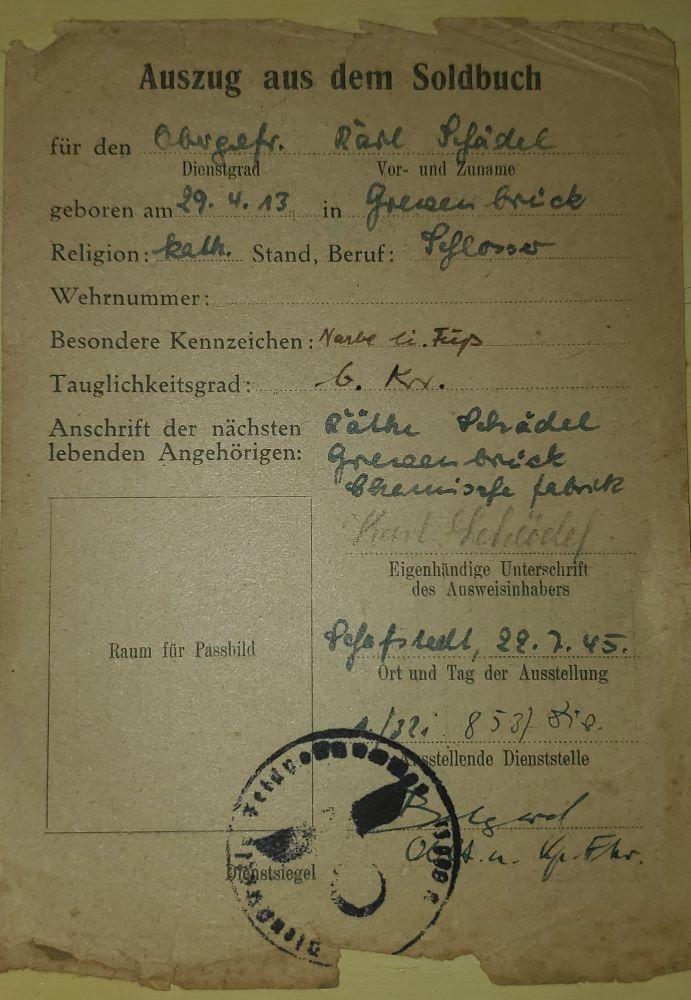 Auszug aus dem Soldbuch
für den Obergefr. Karl Schädel
Dienstgrad Vor- und Zuname
geboren am 29. 4. 13. in Grevenbrück
Religion: kath. Stand, Beruf: Schlosser
Wehrnummer:
Besondere Kennzeichen: Narbe li. Fuß
Tauglichkeitsgrad:
Anschrift der nächsten Käthe Schädel
lebenden Angehörigen: Grevenbrück
Chemische Fabrik
Karl Schädel
Eigenhändige Unterschrift
des Ausweisinhabers
Raum für Passbild
Schafstedt, 22. 7. 45.
Ort und Tag der Ausstellung
853
Ausstellende Dienststelle
Oblt. u. Kp. Fhr.
Dienstsiegel